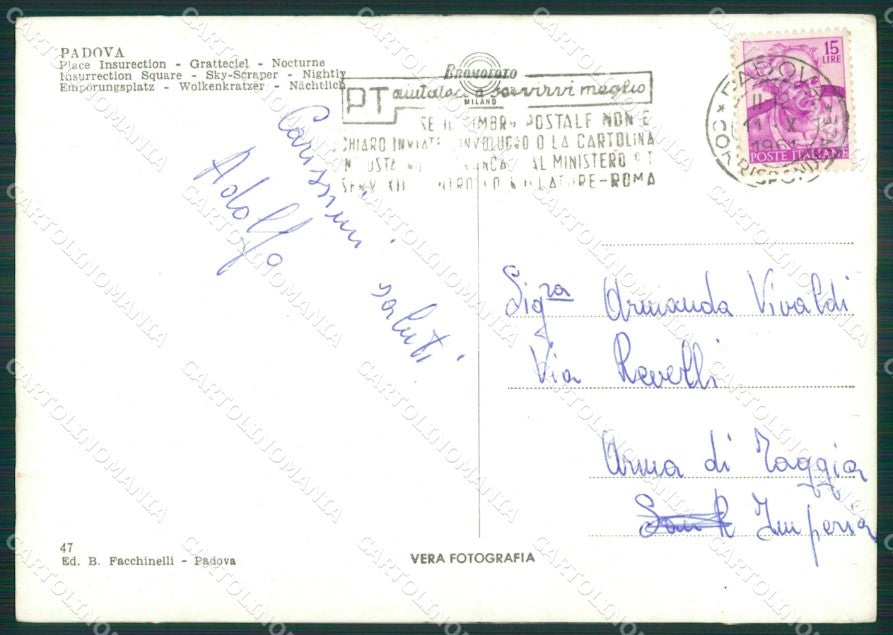 PADOVA
Place Insurection - Gratteciel - Nocturne
Insurrection Square - Sky-Scraper - Nightly
Empörungsplatz - Wolkenkratzer - Nächtlich
Bromofoto
MILANO
PT aiutateci a servirvi meglio
SE IL TIMBRO POSTALE NON È
CHIARO INVIATE L'INVOLUCRO O LA CARTOLINA
AL MINISTERO P.T.
ROMA
15
LIRE
POSTE ITALIANE
PADOVA
CORRISPONDENZE
Carissimi saluti
Adolfo
Sig.ra Armanda Vivaldi
Via Revelli
Arma di Taggia
Imperia
47
Ed. B. Facchinelli - Padova
VERA FOTOGRAFIA
CARTOLINOMANIA